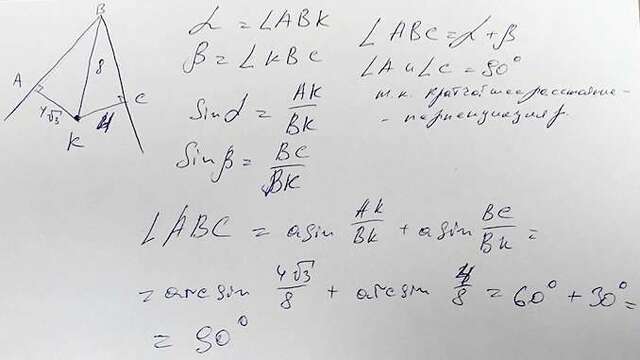 B
A
8
C
4√3
4
K
α = ∠ABK
β = ∠KBC
sin α = AK/BK
sin β = BC/BK
∠ABC = α + β
∠A и ∠C = 90°
т.к. кратчайшее расстояние -
- перпендикуляр.
∠ABC = asin AK/BK + asin BC/BK =
= arcsin 4√3/8 + arcsin 4/8 = 60° + 30° =
= 90°